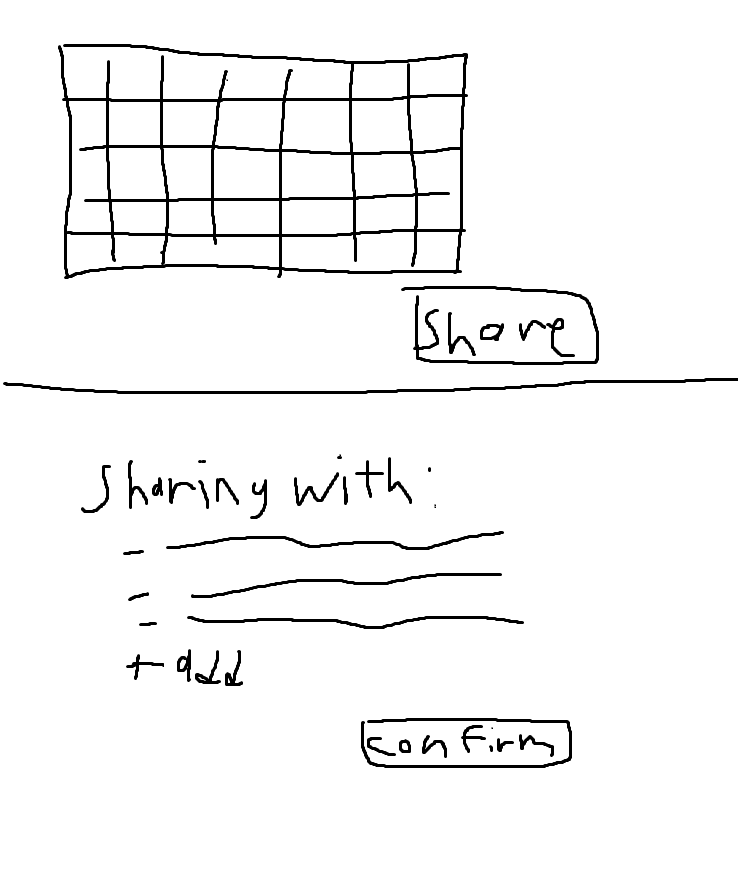 Share
Sharing with:
-
-
-
+ add
confirm